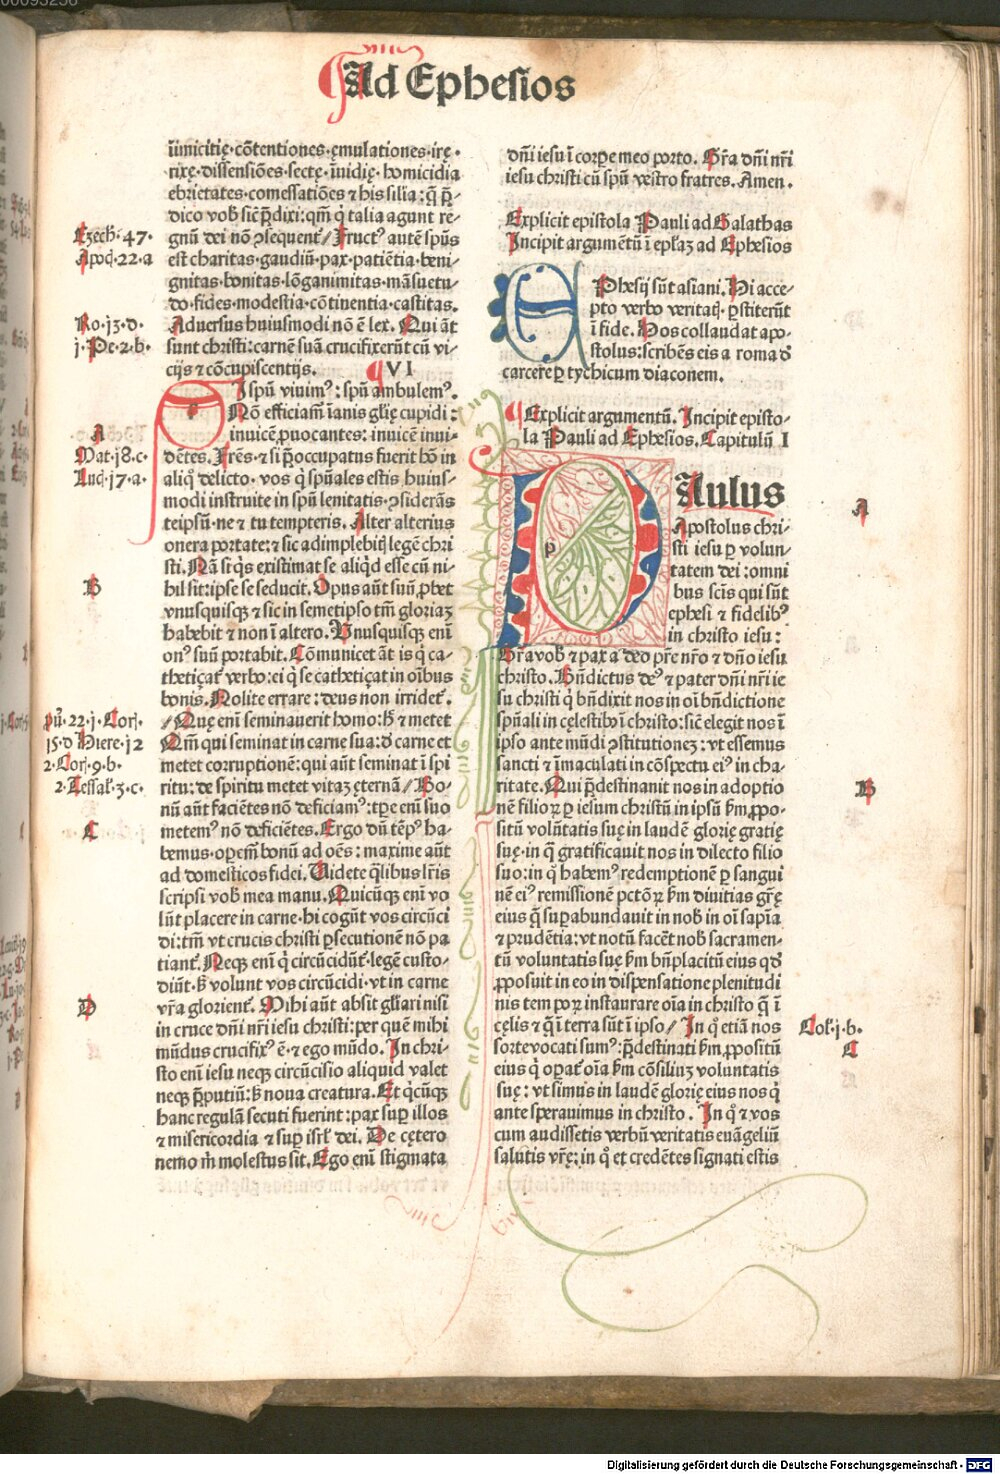 Ad Ephesios
īimicitię·cōtentiones·ęmulationes·irę·
rixę·dissensiōes·sectę·īuidię·homicidia
ebrietates·comessatiōes ⁊ his silia: q̄ p̄-
dico vob̄ siē p̄dixi: qm̄ q̇ talia agunt re-
gnū dei nō ꝯsequent᷑/ Fructꝰ autē spūs
est charitas·gaudiū·pax·patiētia·beni-
gnitas·bonitas·lōganimitas·māsuetu-
do·fides·modestia·cōtinentia·castitas.
Aduersus huiusmodi nō ē lex. Qui āt
sunt christi: carnē suā crucifixerūt cū vi-
cijs ⁊ cōcupiscentijs. VI
I spū viuimꝰ: spū ambulemꝰ.
Nō efficiam᷑ īanis glię cupidi:
inuicē ꝓuocantes: inuicē inui-
dētes. Frēs·⁊ si p̄occupatus fuerit hō in
aliq̇ delicto· vos q̇ spūales estis huius-
modi instruite in spū lenitatis·ꝯsiderās
teipsū·ne ⁊ tu tempteris. Alter alterius
onera portate: ⁊ sic adimplebit̄ legē chri
sti. Nā si qs existimat se aliqd esse cū ni-
hil sit: ipse se seducit. Opus aūt suū ꝓbet
vnusquisqꝫ ⁊ sic in semetipso tm̄ gloriaꝫ
habebit ⁊ non ī altero. Vnusquisqꝫ enī
onꝰ suū portabit. Cōmunicet āt is q̇ ca-
theticat᷑ verbo: ei q̇ se catheticat in oībus
bonis. Nolite errare: deus non irridet᷑.
/ Quę enī seminauerit homo: h̄ ⁊ metet
Qm̄ qui seminat in carne sua: d̄ carne et
metet corruptionē: qui aūt seminat ī spi
ritu: de spiritu metet vitaꝫ ęternā/ Bo-
nū aūt faciētes nō deficiamꝰ: tpe enī suo
metemꝰ nō deficiētes. Ergo dū tēpꝰ ha-
bemus·opem᷑ bonū ad oēs: maxime aūt
ad domesticos fidei. Videte q̄libus lr̄is
scripsi vob̄ mea manu. Quicūqꝫ enī vo
lūt placere in carne·hi cogūt vos circūci
di: tm̄ vt crucis christi ꝑsecutionē nō pa
tiant᷑. Neqꝫ enī q̇ circūcidūt᷑·legē custo-
diūt·ß volunt vos circūcidi·vt in carne
vr̄a glorient᷑. Mihi aūt absit gl̄iari nisi
in cruce dn̄i nr̄i iesu christi: per quē mihi
mūdus crucifixꝰ ē·⁊ ego mūdo. In chri-
sto enī iesu neqꝫ circūcisio aliquid valet
neqꝫ p̄putiū: ß noua creatura. Et q̇cūqꝫ
hanc regulā secuti fuerint: pax suꝑ illos
⁊ misericordia ⁊ suꝑ isrl̄ dei. De cętero
nemo m̄ molestus sit. Ego enī stigmata
Ezech·47·
Apoc̄·22·a
Ro·j3·d·
j·Pe·2·b·
A
Mat·j8·c·
Luc̄·17·a·
B
pū·22·j·Corj·
j5·d Hiere·j2
2·Corj·9·b·
2·Tessal̄·3·c·
C
D
dn̄i iesu ī corpe meo porto. Gr̄a dn̄i nr̄i
iesu christi cū spū vestro fratres. Amen.
Explicit epistola Pauli ad Galathas
Incipit argumētū ī epłaꝫ ad Ephesios
E Phesij sūt asiani. Hi acce-
pto verbo veritat̄· ꝑstiterūt
ī fide. Hos collaudat apo-
stolus: scribēs eis a roma d̄
carcere ꝑ tychicum diaconem.
Explicit argumentū. Incipit episto-
la Pauli ad Ephesios. Capitulū I
p Aulus
Apostolus chri-
sti iesu ꝑ volun-
tatem dei: omni
bus scīs qui sūt
ephesi ⁊ fidelibꝰ
in christo iesu:
Gr̄a vob̄ ⁊ pax a deo pr̄e nr̄o ⁊ dn̄o iesu
christo. Bn̄dictus deꝰ ⁊ pater dn̄i nr̄i ie
su christi q̇ bn̄dixit nos in oī bn̄dictione
spūali in cęlestibꝰ ī christo: siē elegit nos ī
ipso ante mūdi ꝯstitutioneꝫ: vt essemus
sancti ⁊ īmaculati in cōspectu eiꝰ in cha-
ritate. Qui p̄destinauit nos in adoptio
nē filioꝝ ꝑ iesum christū in ipsū ßm ꝓpo-
sitū volūtatis suę in laudē glorię gratię
suę·in q̄ gratificauit nos in dilecto filio
suo: in q̇ habemꝰ redemptionē ꝑ sangui
nē eiꝰ remissionē pctōꝝ ßm diuitias gr̄ę
eius q̄ suꝑabundauit in nob̄ in oī sapīa
⁊ prudētia: vt notū facet᷑ nob̄ sacramen-
tū voluntatis suę ßm bn̄placitū eius qd̄
ꝓposuit in eo in dispensatione plenitudi
nis tem poꝝ instaurare oīa in christo q̄ ī
cęlis ⁊ q̄ ī terra sūt ī ipso/ In q̇ etiā nos
sorte vocati sumꝰ: p̄destinati ßm ꝓpositū
eius q̇ opat᷑ oīa ßm cōsiliuꝫ voluntatis
suę: vt simus in laudē glorię eius nos q̇
ante sperauimus in christo. In q̇ ⁊ vos
cum audissetis verbū veritatis euāgeliū
salutis vr̄ę: in q̇ et credētes signati estis
A
B
Col·j·b·
C
Digitalisierung gefördert durch die Deutsche Forschungsgemeinschaft - DFG